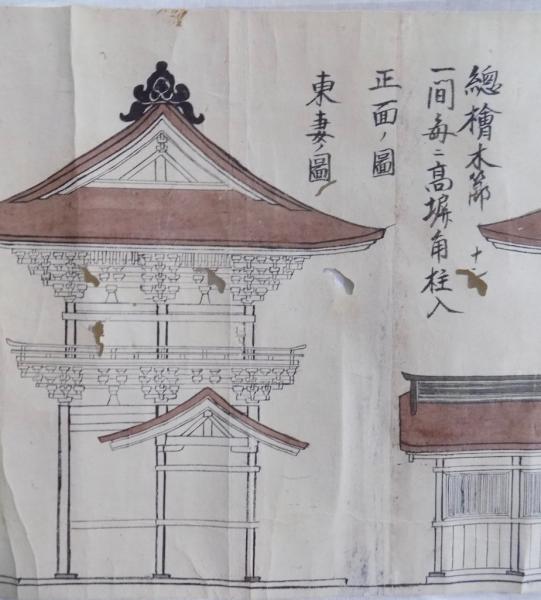 總檜木節十
一間每ニ高塀角柱入
正面ノ圖
東妻ノ圖